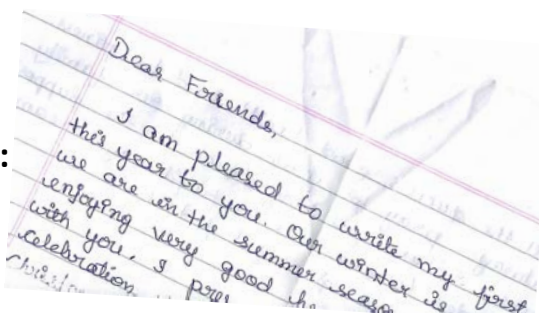 :
Dear Friends,
I am pleased to write my first
this year to you. Our winter is
we are in the summer season
enjoying very good he
with you. I pre
celebration
Christm